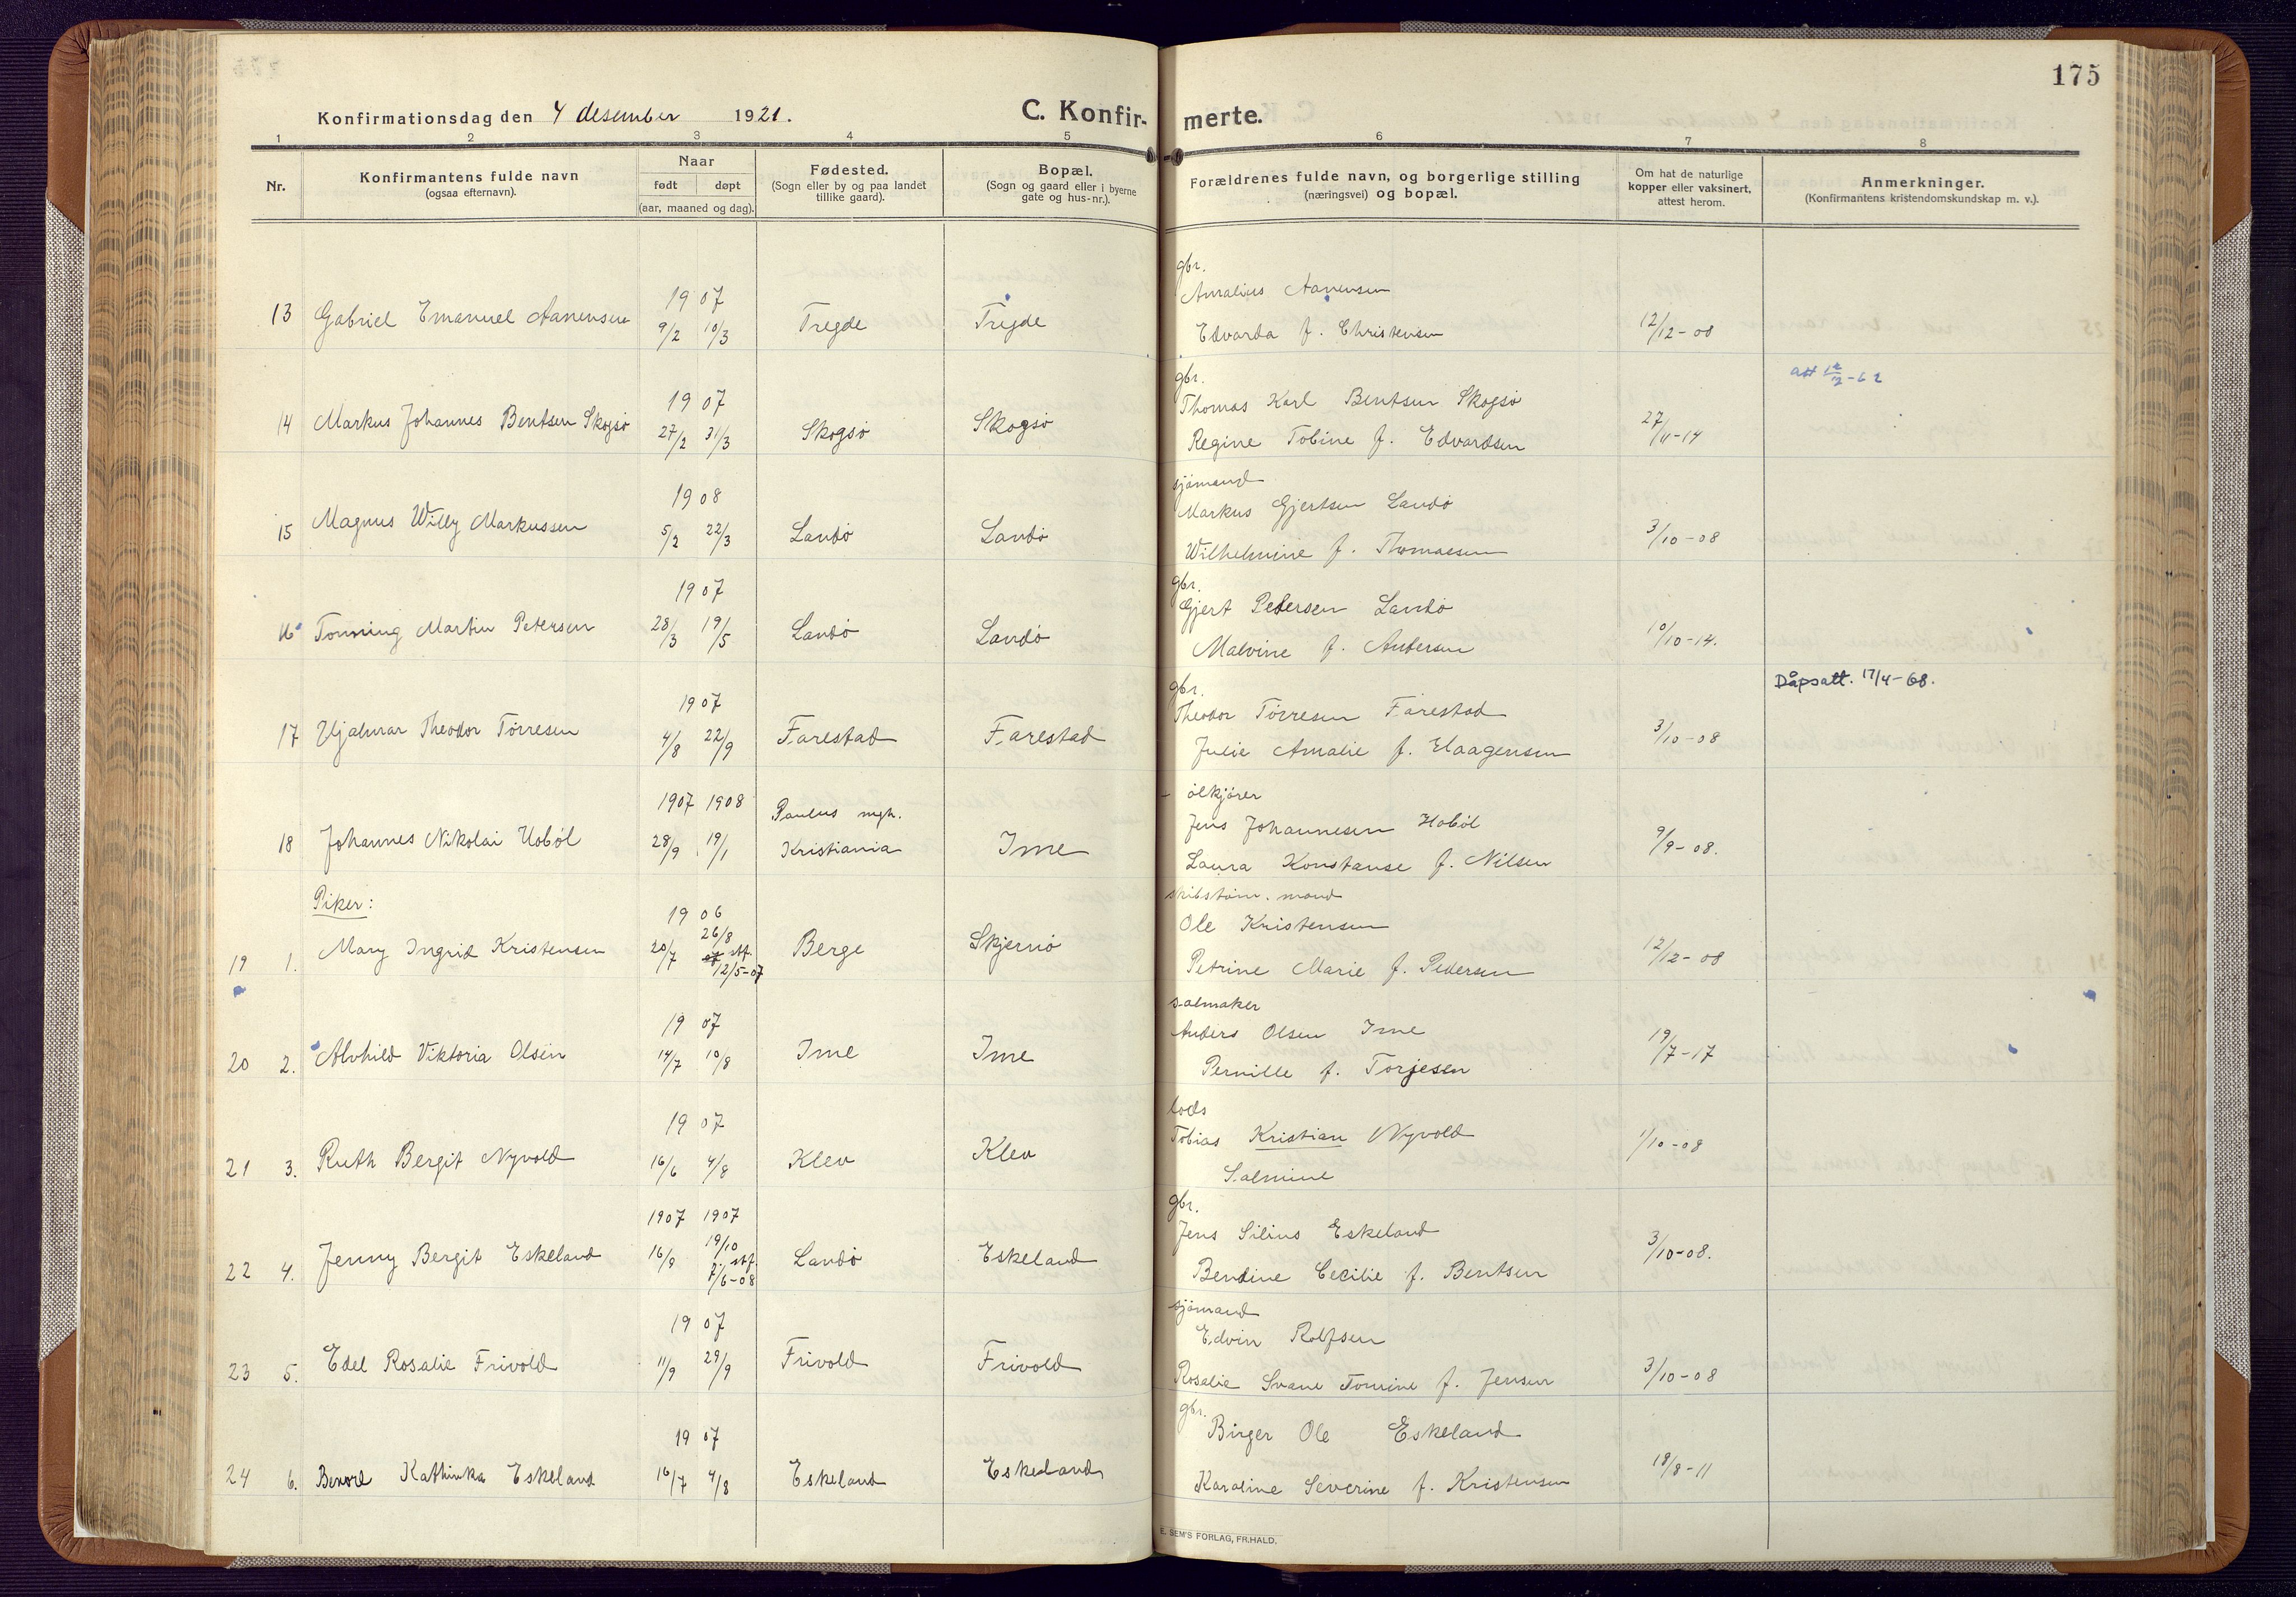 175
Konfirmationsdag den 4 desember 1921.
C. Konfirmerte.
1 2 3 4 5 6 7 8
Nr.
Konfirmantens fulde navn
(ogsaa efternavn).
Naar
født døpt
(aar, maaned og dag).
Fødested.
(Sogn eller by og paa landet
tillike gaard).
Bopæl.
(Sogn og gaard eller i byerne
gate og hus-nr.).
Forældrenes fulde navn, og borgerlige stilling
(næringsvei) og bopæl.
Om hat de naturlige
kopper eller vaksinert,
attest herom.
Anmerkninger.
(Konfirmantens kristendomskundskap m. v.).
gbr.
19 07 Amalius Aanensen
13 Gabriel Emanuel Aanensen 9/2 10/3 Tregde Tregde Edvarda f. Christensen 12/12-08
gbr. att 12/2-62
19 07 Thomas Karl Bentsen Skogsø
14 Markus Johannes Bentsen Skogsø 27/2 31/3 Skogsø Skogsø Regine Tobine f. Edvardsen 27/11-14
sjømand
19 08 Markus Gjertsen Landø
15 Magnus Willy Markussen 5/2 22/3 Landø Landø Wilhelmine f. Thomassen 3/10-08
gbr.
19 07 Gjert Pedersen Landø
16 Tønning Martin Petersen 28/3 19/5 Landø Landø Malvine f. Andersen 10/10-14.
gbr. Dåpsatt. 17/4-68.
19 07 Theodor Tørresen Farestad
17 Hjalmar Theodor Tørresen 4/8 22/9 Farestad Farestad Julie Amalie f. Haagensen 3/10-08
ølkjører
1907 1908 Paulus mgh. Jens Johannesen Hobøl
18 Johannes Nikolai Hobøl 28/9 19/1 Kristiania Ime Laura Konstanse f. Nilsen 9/9-08.
Piker: skibstøm. mand
19 06 Ole Kristensen
26/8
19 1. Mary Ingrid Kristensen 20/7 stf. 12/5-07 Berge Skjernø Petrine Marie f. Pedersen 12/12-08
salmaker
19 07 Anders Olsen Ime
20 2. Alvhild Viktoria Olsen 14/7 10/8 Ime Ime Pernille f. Torjesen 19/7-17
lods
19 07 Tobias Kristian Nyvold
21 3. Ruth Bergit Nyvold 16/6 4/8 Klev Klev Salmine 1/10-08
gbr.
1907 1907 Jens Silius Eskeland
19/10
22 4. Jenny Bergit Eskeland 16/9 stf. 7/6-08 Landø Eskeland Bendine Cecilie f. Bentsen 3/10-08.
sjømand
19 07 Edvin Rolfsen
23 5. Edel Rosalie Frivold 11/9 29/9 Frivold Frivold Rosalie Svane Tomine f. Jensen 3/10-08
gbr.
19 07 Birger Ole Eskeland
24 6. Kathinka Eskeland 16/7 4/8 Eskeland Eskeland Karoline Severine f. Kristensen 18/8-11
E. SEM'S FORLAG, FR.HALD.